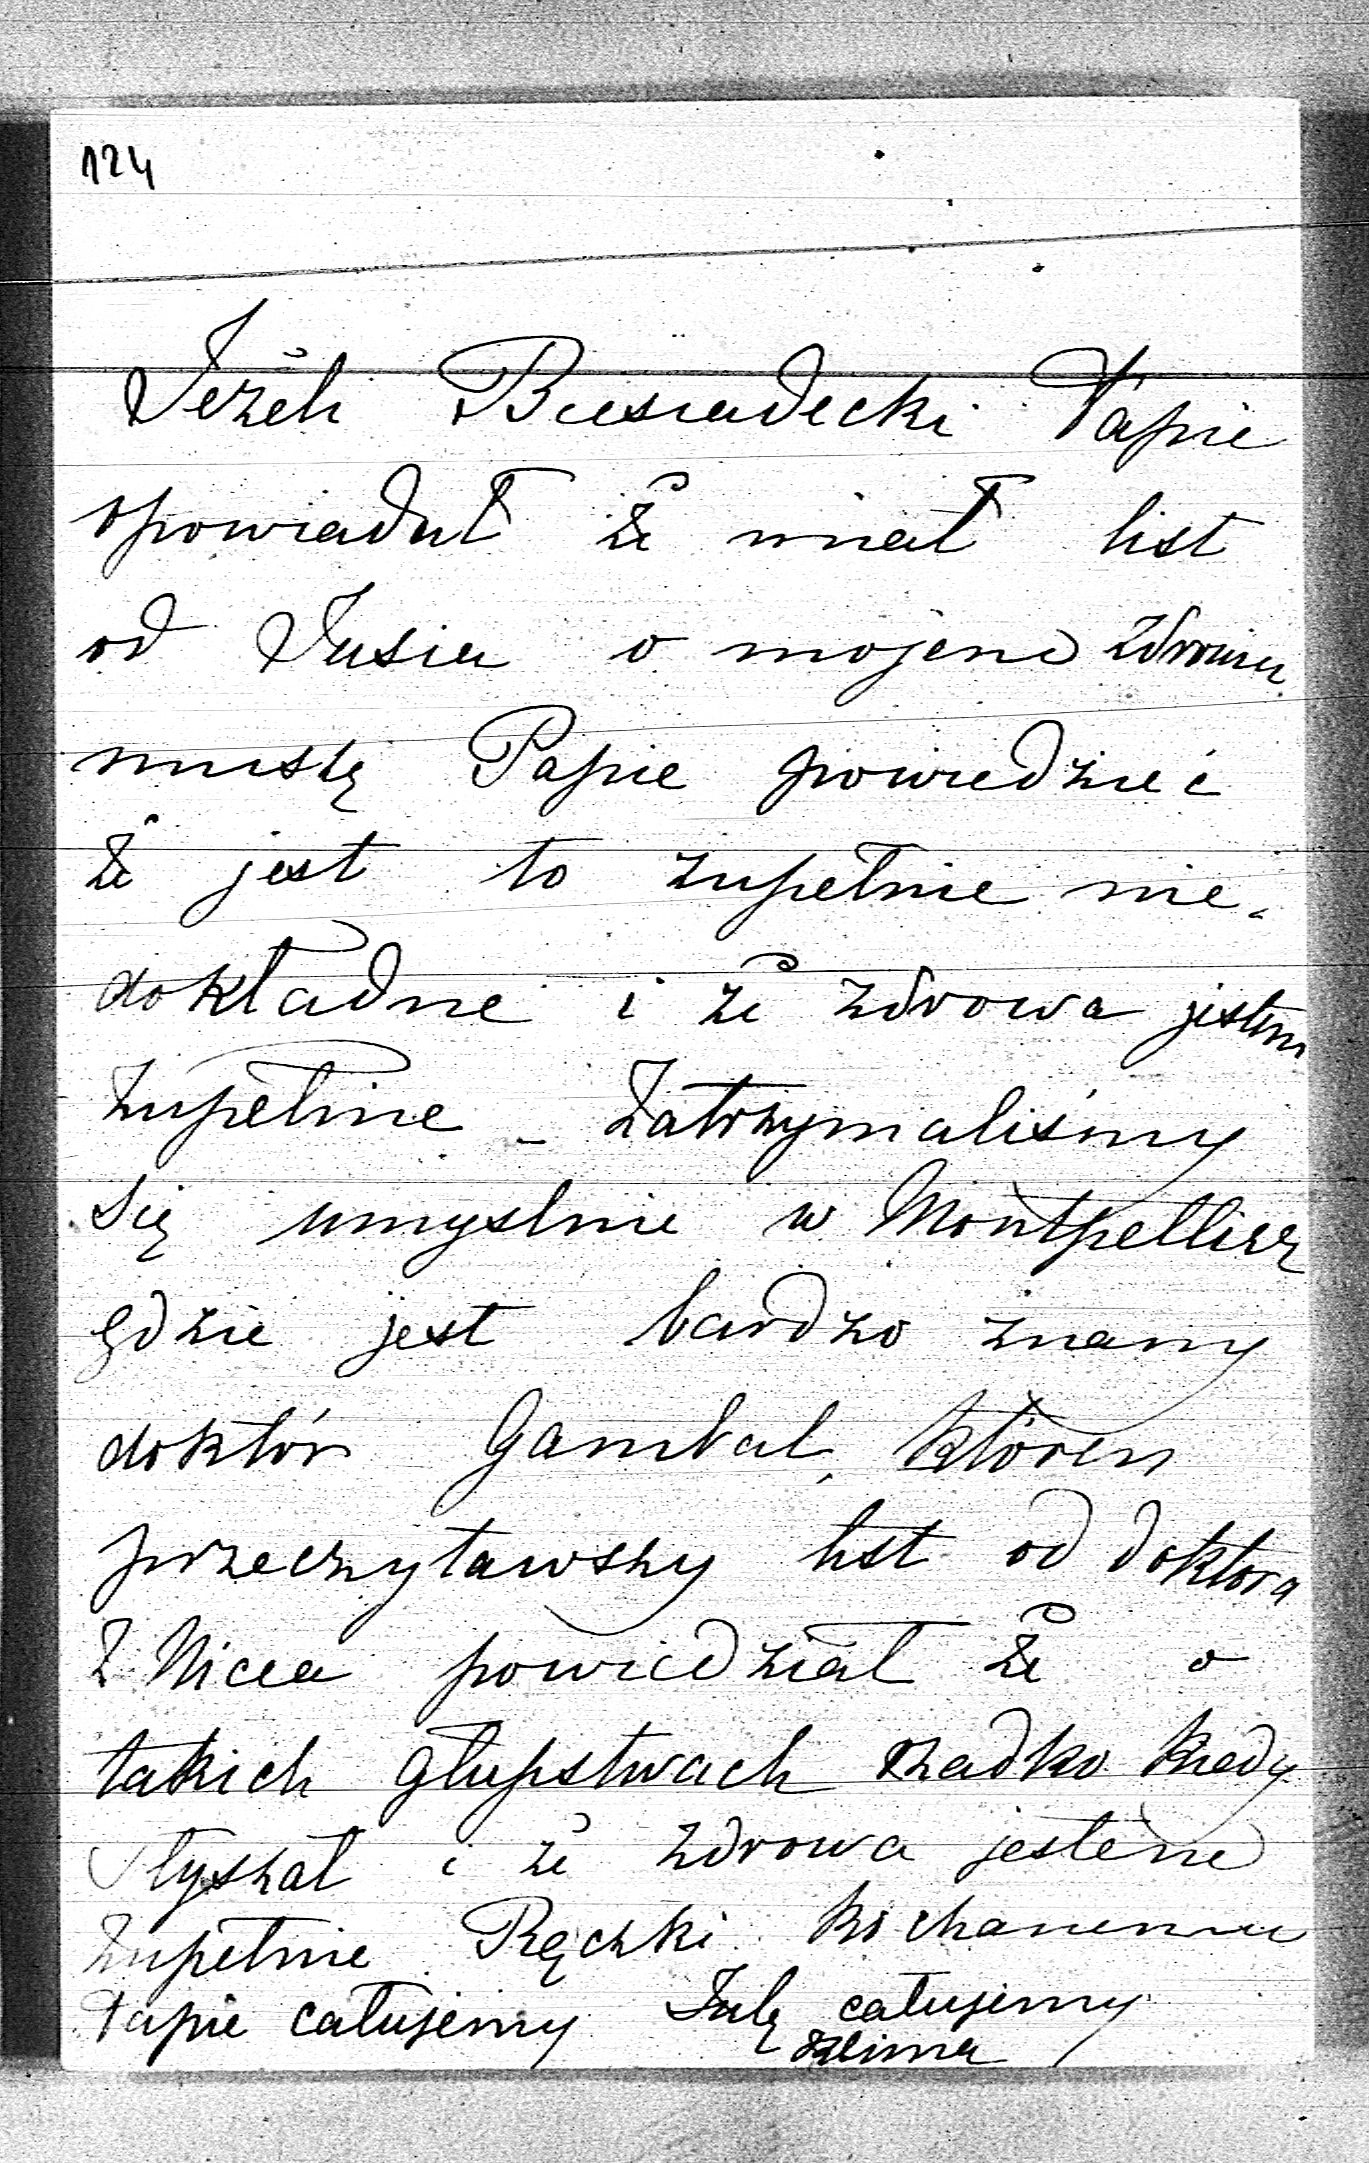 124
Jeżeli Biesiadecki Papie
opowiadał że miał list
od Jusia o mojem zdrowiu
muszę Papie powiedzieć
że jest to zupełnie nie-
dokładne i że zdrowa jestem
zupełnie – Zatrzymaliśmy
się umyslnie w Montpellier
gdzie jest bardzo znany
doktór Gambal, któren
przeczytawszy list od doktora
z Nicea powiedział że o
takich głupstwach rzadko kiedy
słyszał i że zdrowa jestem
zupełnie. Rączki kochanemu
Papie całujemy Julę całujemy